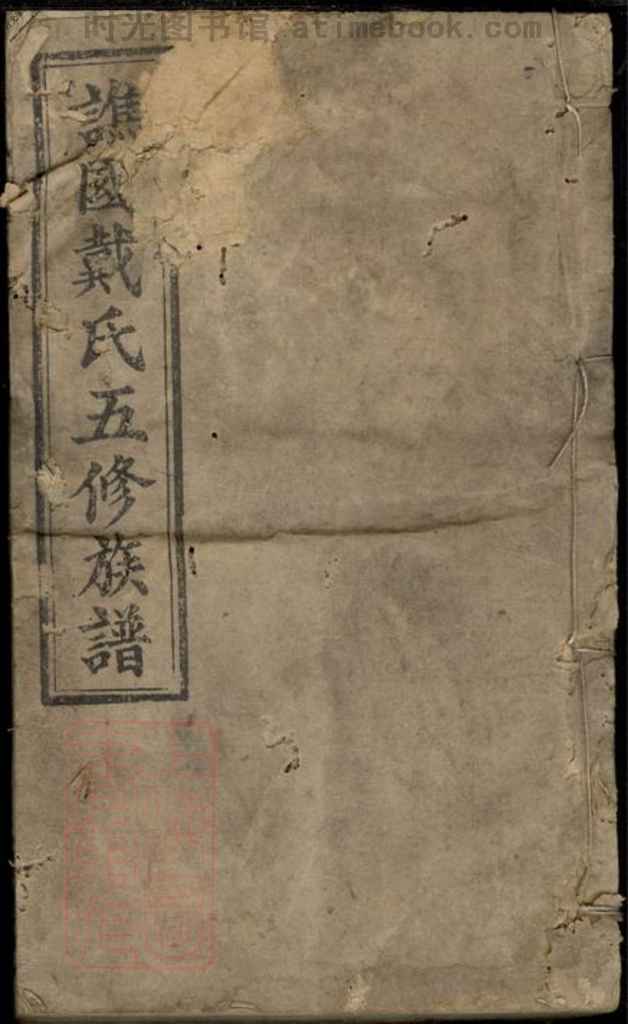 时光图书馆 atimebook.com
譙國戴氏五修族譜